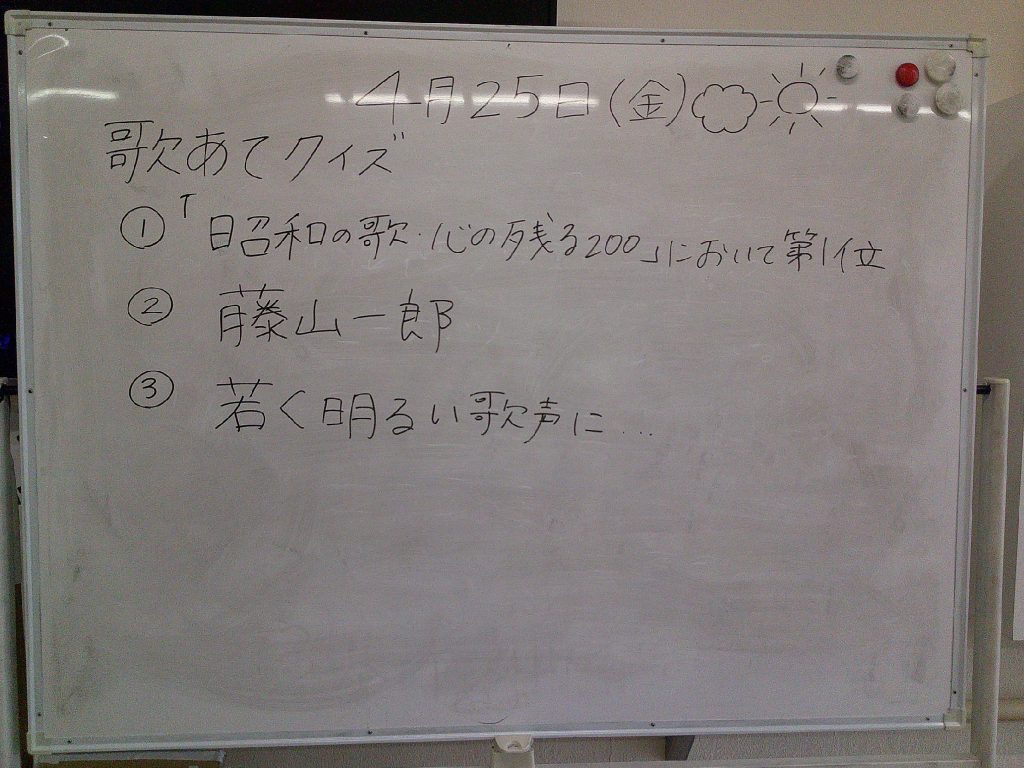 4月25日(金)
歌あてクイズ
① 「昭和の歌・心の残る200」において第1位
② 藤山一郎
③ 若く明るい歌声に…